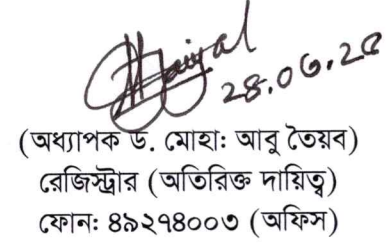 (অধ্যাপক ড. মোহা: আবু তৈয়ব)
রেজিস্ট্রার (অতিরিক্ত দায়িত্ব)
ফোন: ৪৯২৭৪০০৩ (অফিস)